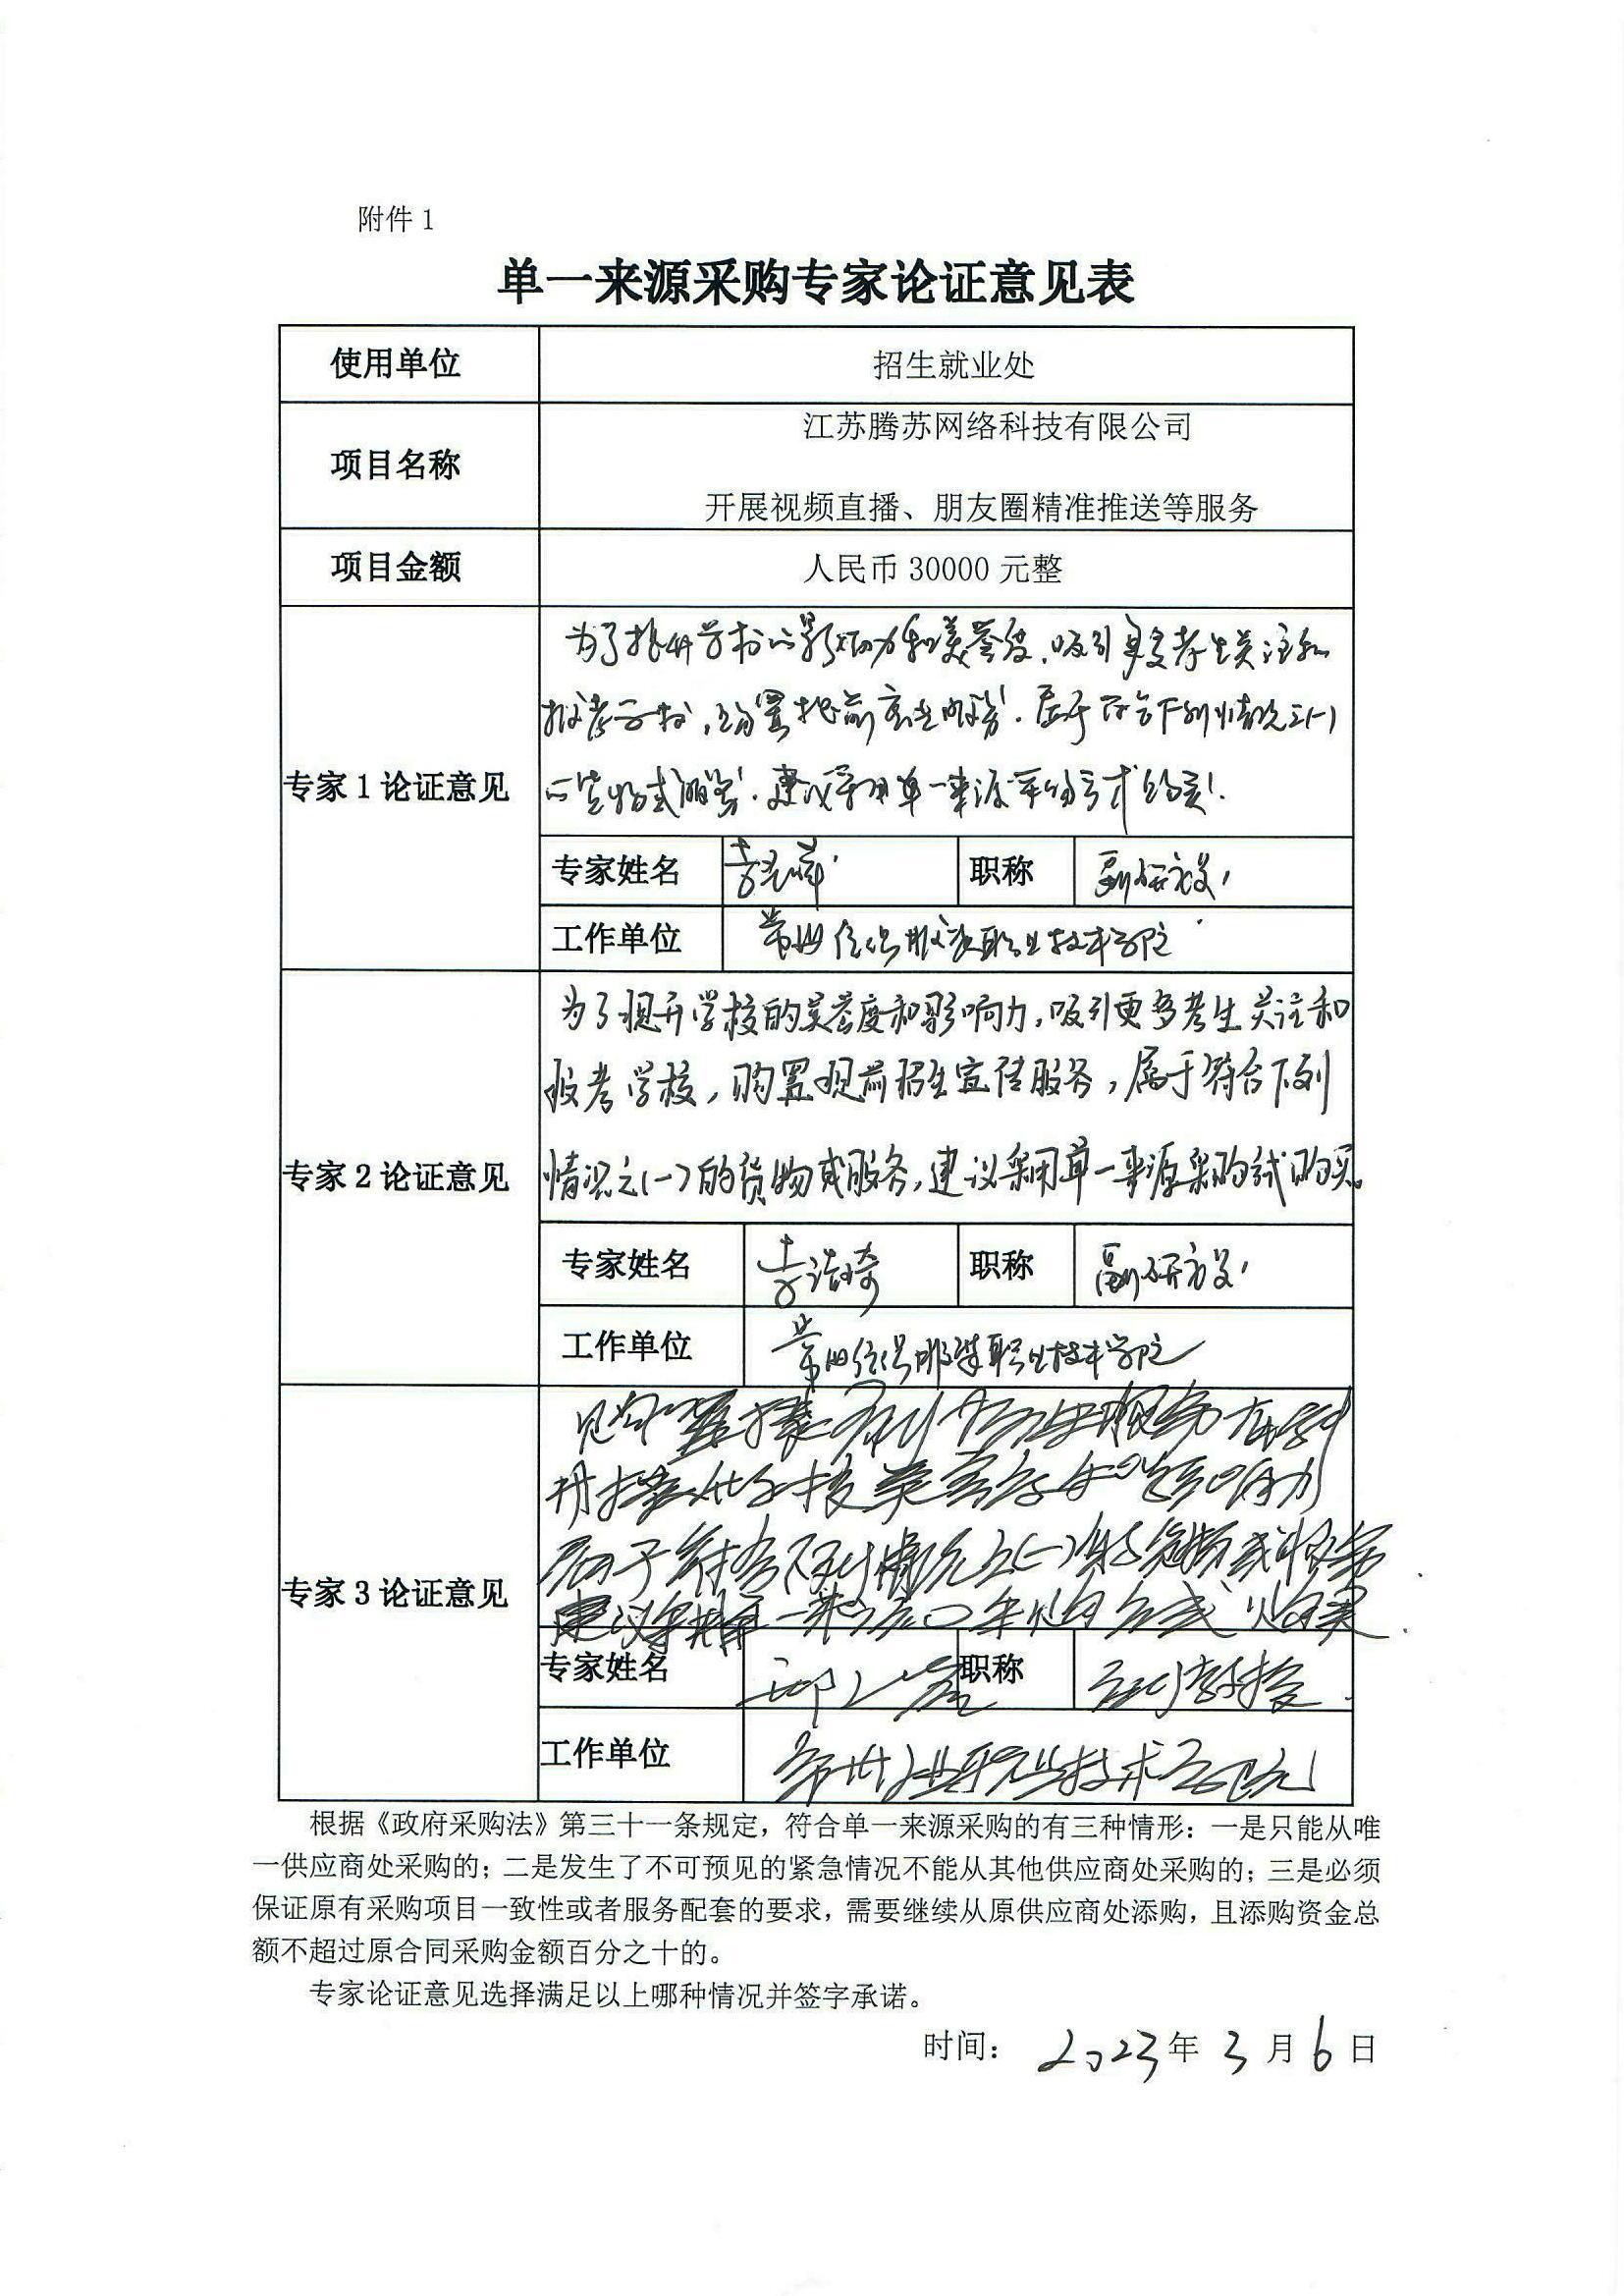 附件 1
单一来源采购专家论证意见表
使用单位 招生就业处
项目名称 江苏腾苏网络科技有限公司
开展视频直播、朋友圈精准推送等服务
项目金额 人民币 30000 元整
专家 1 论证意见
为了提升学校的影响力和美誉度,吸引更多考生关注和
报考学校,购置提前宣传服务,属于符合下列情况之(一)
的货物或服务,建议采用单一来源采购方式购买.
专家姓名 李 职称 副研究员
工作单位 常州信息服务职业技术学院
专家 2 论证意见
为了提升学校的美誉度和影响力,吸引更多考生关注和
报考学校,购置提前招生宣传服务,属于符合下列
情况之(一)的货物或服务,建议采用单一来源采购方式购买。
专家姓名 李浩琦 职称 副研究员
工作单位 常州 职业技术学院
专家 3 论证意见
购置 服务 有利
提升学校美誉度和影响力
属于符合下列情况之(一)的货物或服务
建议采用单一来源采购方式购买.
专家姓名 邢 职称 副教授
工作单位 常州 职业技术学院
根据《政府采购法》第三十一条规定,符合单一来源采购的有三种情形:一是只能从唯
一供应商处采购的;二是发生了不可预见的紧急情况不能从其他供应商处采购的;三是必须
保证原有采购项目一致性或者服务配套的要求,需要继续从原供应商处添购,且添购资金总
额不超过原合同采购金额百分之十的。
专家论证意见选择满足以上哪种情况并签字承诺。
时间: 2023 年 3 月 6 日